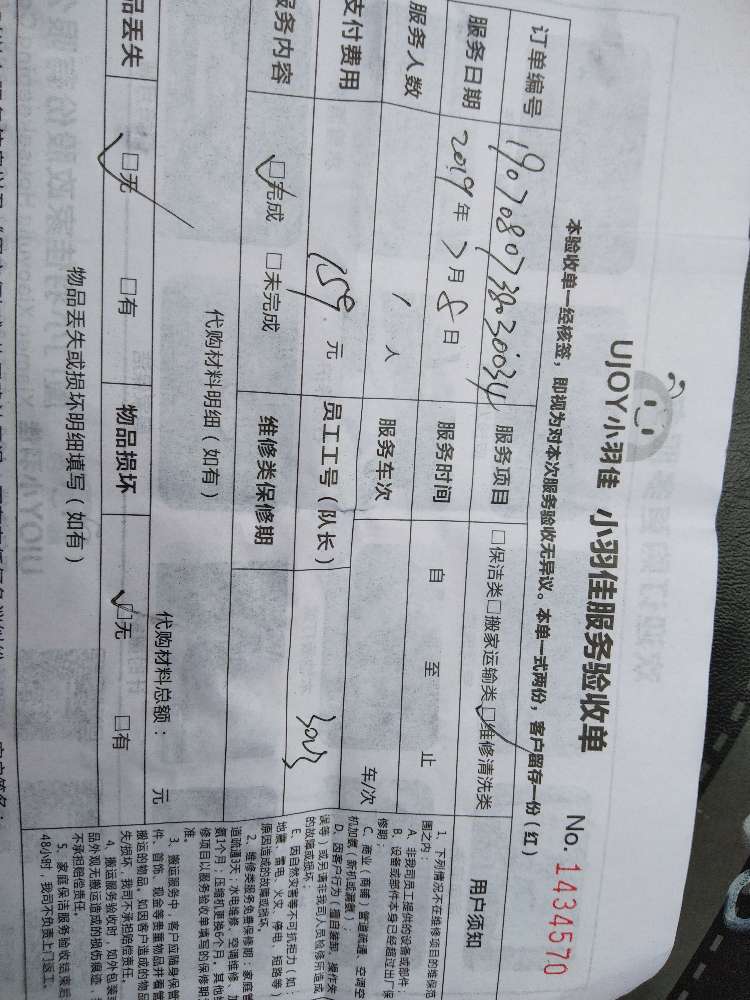 UJOY小羽佳 小羽佳服务验收单 No. 1434570
本验收单一经核签，即视为对本次服务验收无异议。本单一式两份，客户留存一份（红）
订单编号 服务项目 □保洁类□搬家运输类□维修清洗类 用户须知
服务日期 2019年7月8日 服务时间 自 至 止
服务人数 1 人 服务车次 车/次
支付费用 159 元 员工工号（队长）
服务内容 □完成 □未完成 维修类保修期
代购材料明细（如有） 代购材料总额： 元
品丢失 □无 □有 物品损坏 □无 □有
物品丢失或损坏明细填写（如有）
1、下列情况不在维修项目的维保范
围之内：
A、非我司员工提供的设备或部件；
B、设备或部件本身已经超过出厂保
修期；
C、商业（商铺）管道疏通、空调空
D、因客户行为（擅自装卸、操作失
误等）或另请非我司人员检修所造成
的故障或损坏；
E、因自然灾害等不可抗拒力（如：
地震、雷电、火灾、停电、短路等）
原因造成的故障或损坏。
2、维修类服务免费保修期：家庭管
道疏通3天；水电维修、空调维修、加
氟1个月；压缩机更换6个月，其他维
修项目以服务验收单填写的保修期为
准。
3、搬运服务中，客户应随身保管
件、首饰、现金等贵重物品并看管
搬运的物品，如因客户造成的物品
失/损坏，我司不承担赔偿责任。
4、搬运服务验收时，如外包装
品外观无搬运造成的损伤痕迹，
不承担赔偿责任。
5、家庭保洁服务验收结束后
48小时，我司不负责上门返工。